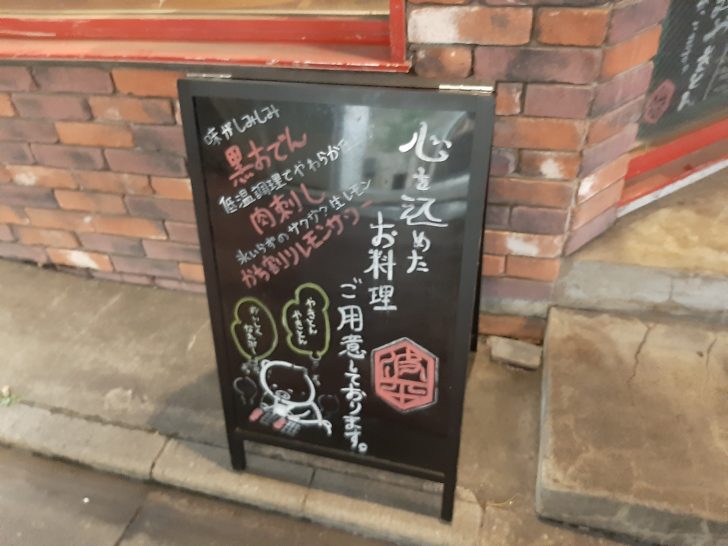 心を込めた
お料理
ご用意しております。
味がしみしみ
黒おでん
低温調理でやわらかた
肉刺し
氷いらずのサクサク生レモン
かち割りレモンサワー
やきとん
やきとん
おいしく